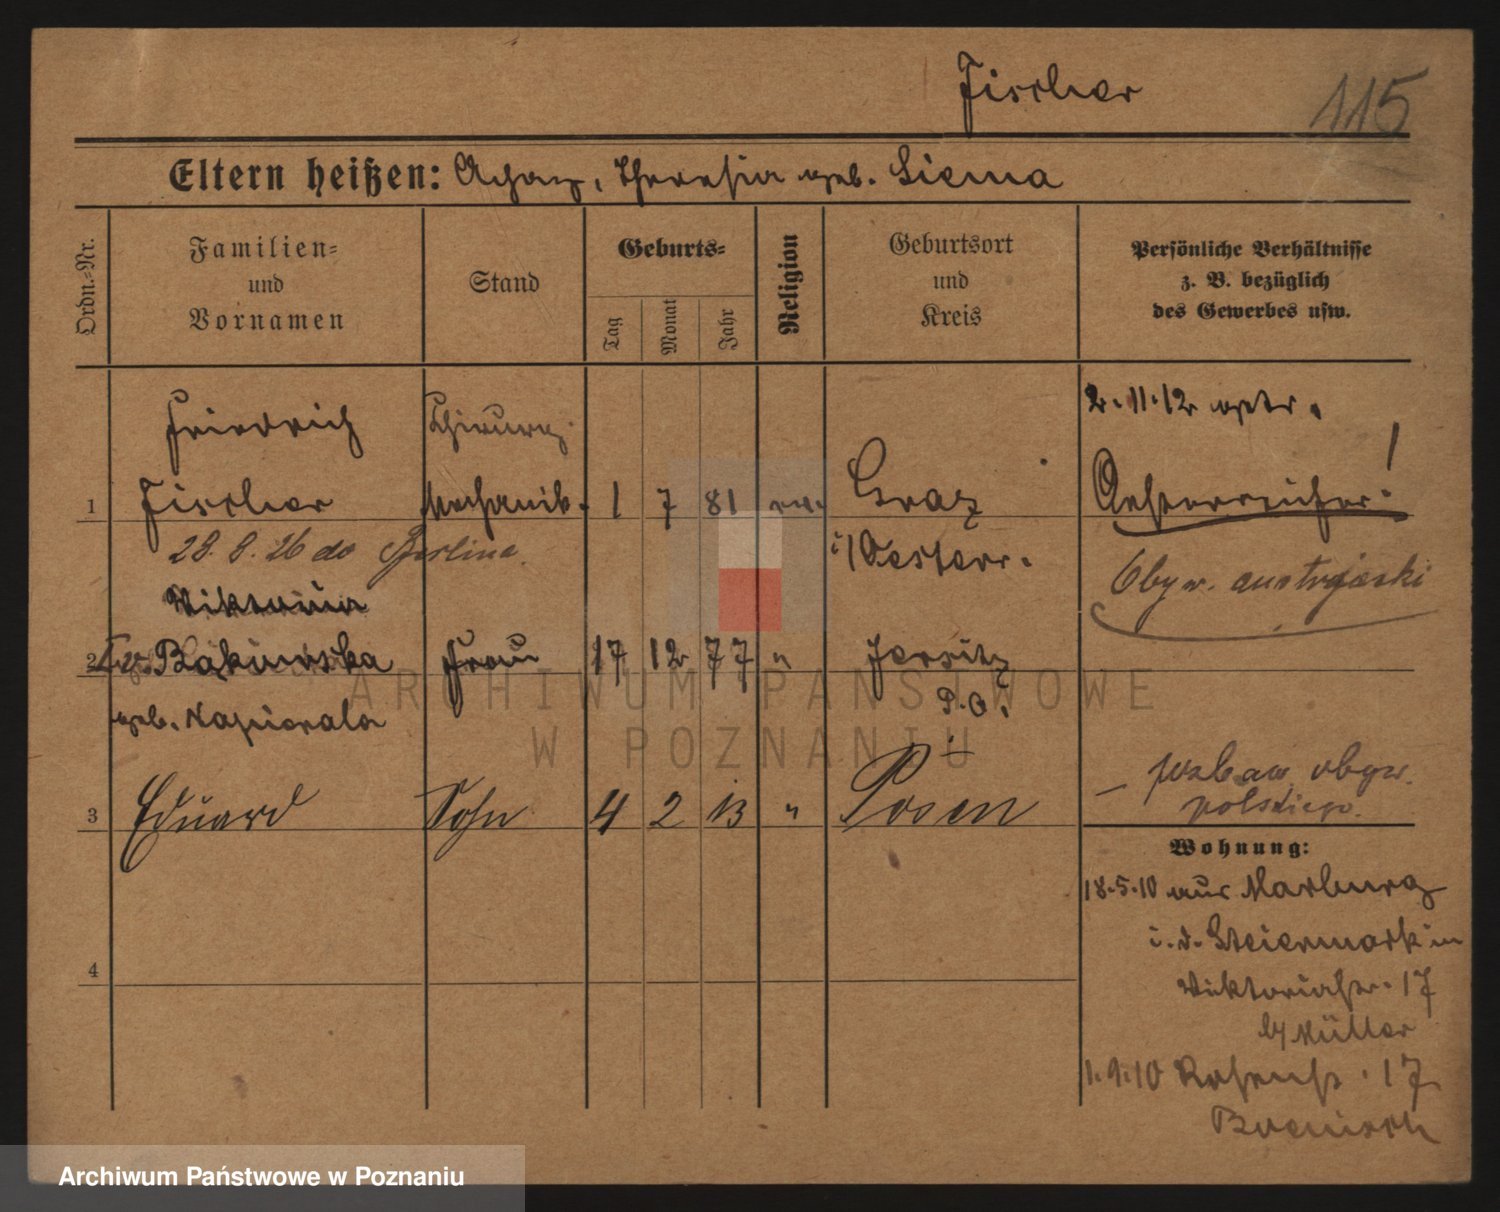 Fischer
115
Eltern heißen: Theresia geb. Siema
Ordn.-Nr.
Familien-
und
Vornamen
Stand
Geburts-
Tag
Monat
Jahr
Religion
Geburtsort
und
Kreis
Persönliche Verhältnisse
z. B. bezüglich
des Gewerbes usw.
Friedrich
Chirurg.
2.11.12
1 Fischer Mechanik. 1 7 81 Graz
Oesterreicher!
28.8.26 do Berlina.
i/Oesterr.
Obyw. austryjacki
Viktoria
2 Frau 17 12 77 " Jersitz
geb. Napierala
P.O.
3 Eduard Sohn 4 2 13 " Posen
– pozbaw. obyw.
polskiego.
Wohnung:
18.5.10 aus Marburg
i. d. Steiermark in
4
Viktoriastr. 17
b/ Müller
1.9.10 17
ARCHIWUM PAŃSTWOWE
W POZNANIU
Archiwum Państwowe w Poznaniu